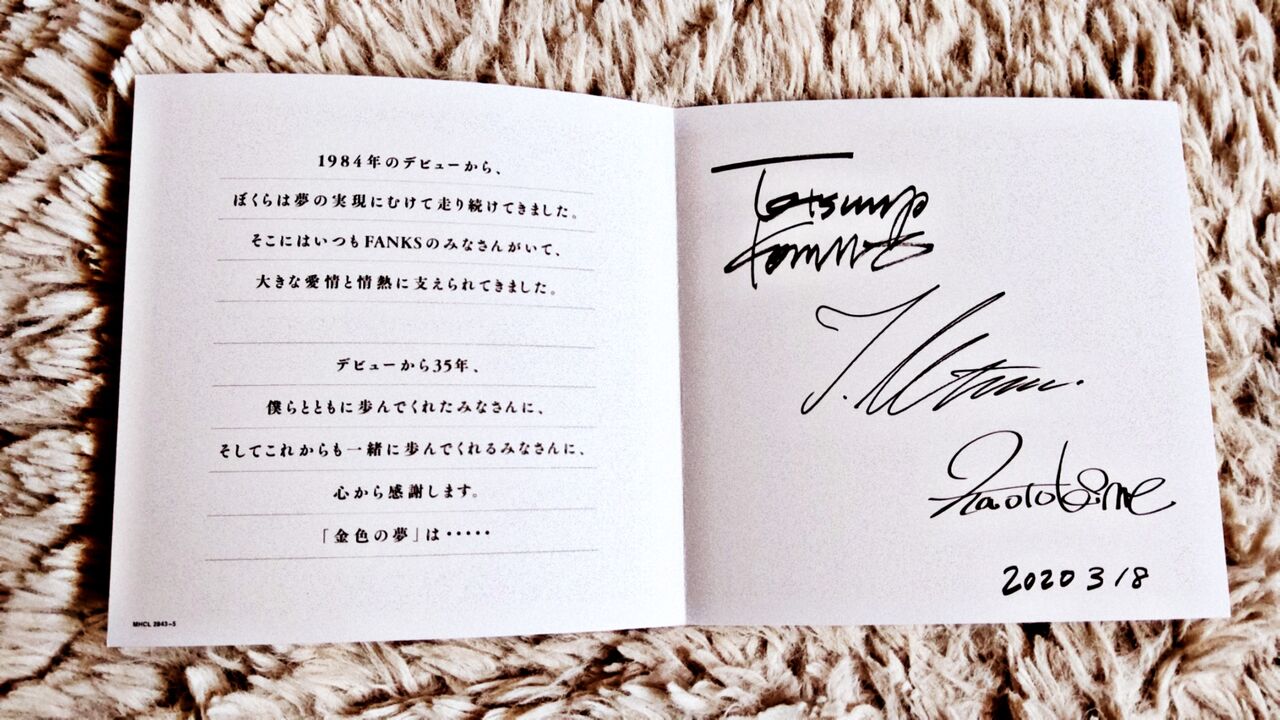 1984年のデビューから、
ぼくらは夢の実現にむけて走り続けてきました。
そこにはいつもFANKSのみなさんがいて、
大きな愛情と情熱に支えられてきました。
デビューから35年、
僕らとともに歩んでくれたみなさんに、
そしてこれからも一緒に歩んでくれるみなさんに、
心から感謝します。
「金色の夢」は・・・・・
MHCL 2843~5
Tetsuya
T. Utsu.
Naoto kine
2020 3 18